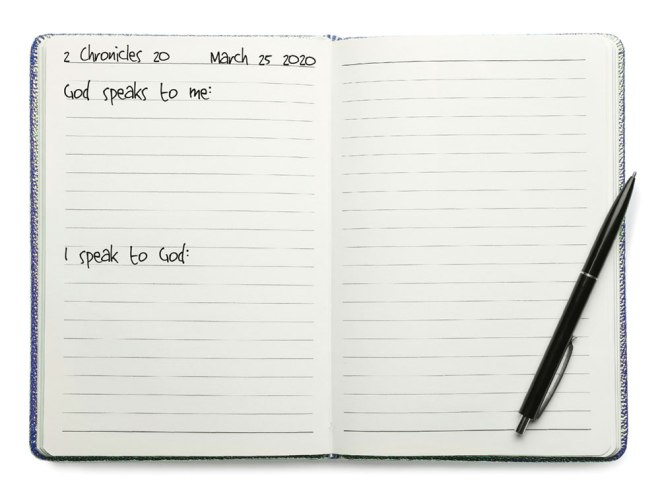 2 Chronicles 20 March 25 2020
God speaks to me:
I speak to God: